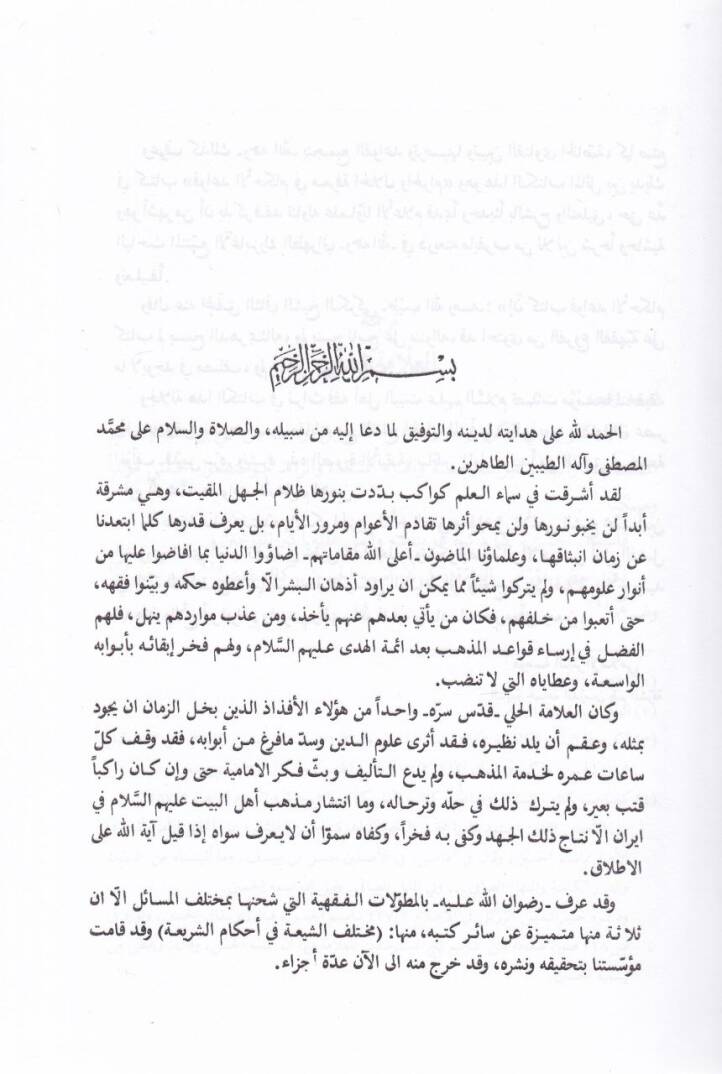 بسم الله الرحمن الرحيم
الحمد لله على هدايته لدينه والتوفيق لما دعا إليه من سبيله، والصلاة والسلام على محمّد
المصطفى وآله الطيبين الطاهرين.
لقد أشرقت في سماء العلم كواكب بدّدت بنورها ظلام الجهل المقيت، وهي مشرقة
أبداً لن يخبو نورها ولن يمحو أثرها تقادم الأعوام ومرور الأيام، بل يعرف قدرها كلما ابتعدنا
عن زمان انبثاقها، وعلماؤنا الماضون ـ أعلى الله مقاماتهم ـ اضاؤوا الدنيا بما افاضوا عليها من
أنوار علومهم، ولم يتركوا شيئاً مما يمكن ان يراود أذهان البشر الّا وأعطوه حكمه وبيّنوا فقهه،
حتى أتعبوا من خلفهم، فكان من يأتي بعدهم عنهم يأخذ، ومن عذب مواردهم ينهل، فلهم
الفضل في إرساء قواعد المذهب بعد ائمة الهدى عليهم السَّلام، ولهم فخر إبقائه بأبوابه
الواسعة، وعطاياه التي لا تنضب.
وكان العلامة الحلي ـ قدّس سرّه ـ واحداً من هؤلاء الأفذاذ الذين بخل الزمان ان يجود
بمثله، وعقم أن يلد نظيره، فقد أثرى علوم الدين وسدّ مافرغ من أبوابه، فقد وقف كلّ
ساعات عمره لخدمة المذهب، ولم يدع التأليف وبثّ فكر الامامية حتى وإن كان راكباً
قتب بعير، ولم يترك ذلك في حلّه وترحاله، وما انتشار مذهب أهل البيت عليهم السَّلام في
ايران الّا نتاج ذلك الجهد وكفى به فخراً، وكفاه سموّا أن لايعرف سواه إذا قيل آية الله على
الاطلاق.
وقد عرف ـ رضوان الله عليه ـ بالمطوّلات الفقهية التي شحنها بمختلف المسائل الّا ان
ثلاثة منها متميزة عن سائر كتبه، منها: (مختلف الشيعة في أحكام الشريعة) وقد قامت
مؤسّستنا بتحقيقه ونشره، وقد خرج منه الى الآن عدّة أجزاء.